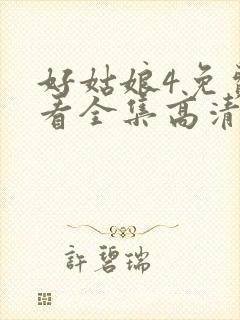 好姑娘4免
看全集高清
許碧瑞